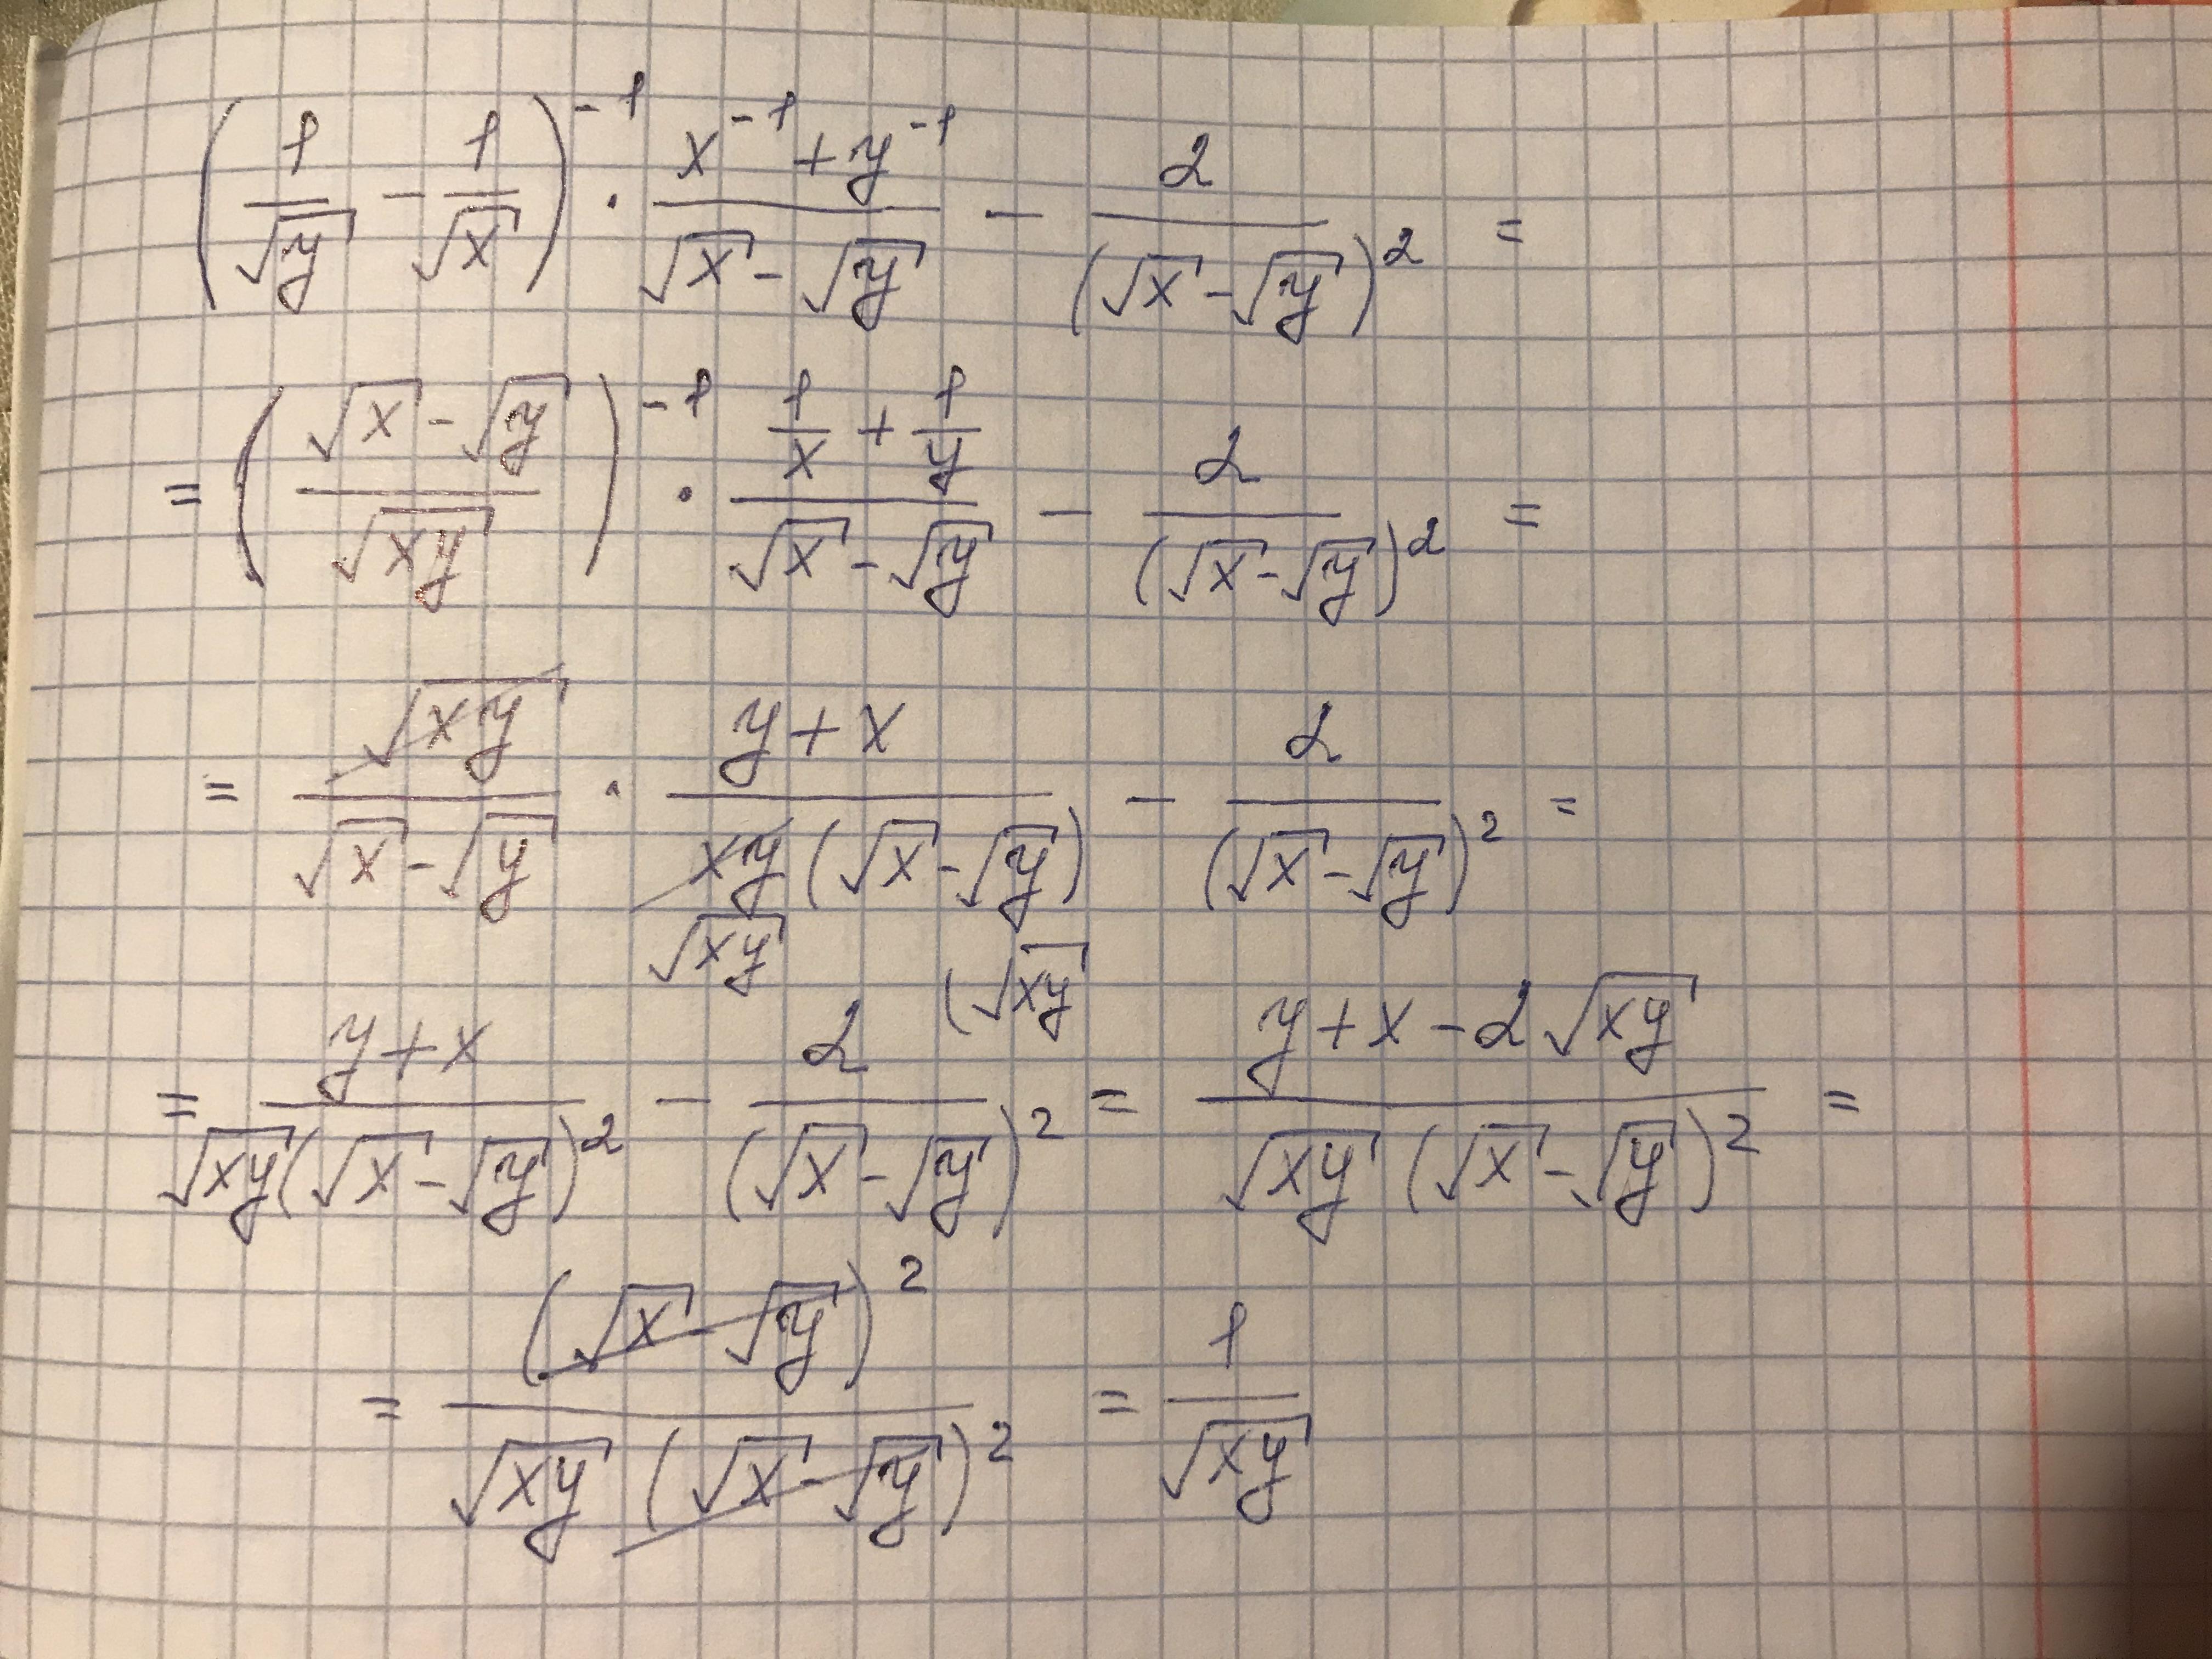 (1/√y - 1/√x)^-1 · (x^-1 + y^-1)/(√x - √y) - 2/(√x - √y)^2 =
= ((√x - √y)/√xy)^-1 · (1/x + 1/y)/(√x - √y) - 2/(√x - √y)^2 =
= √xy/(√x - √y) · (y + x)/(xy(√x - √y)) - 2/(√x - √y)^2 =
√xy
(√xy
= (y + x)/(√xy(√x - √y)^2) - 2/(√x - √y)^2 = (y + x - 2√xy)/(√xy (√x - √y)^2) =
= (√x - √y)^2/(√xy (√x - √y)^2) = 1/√xy